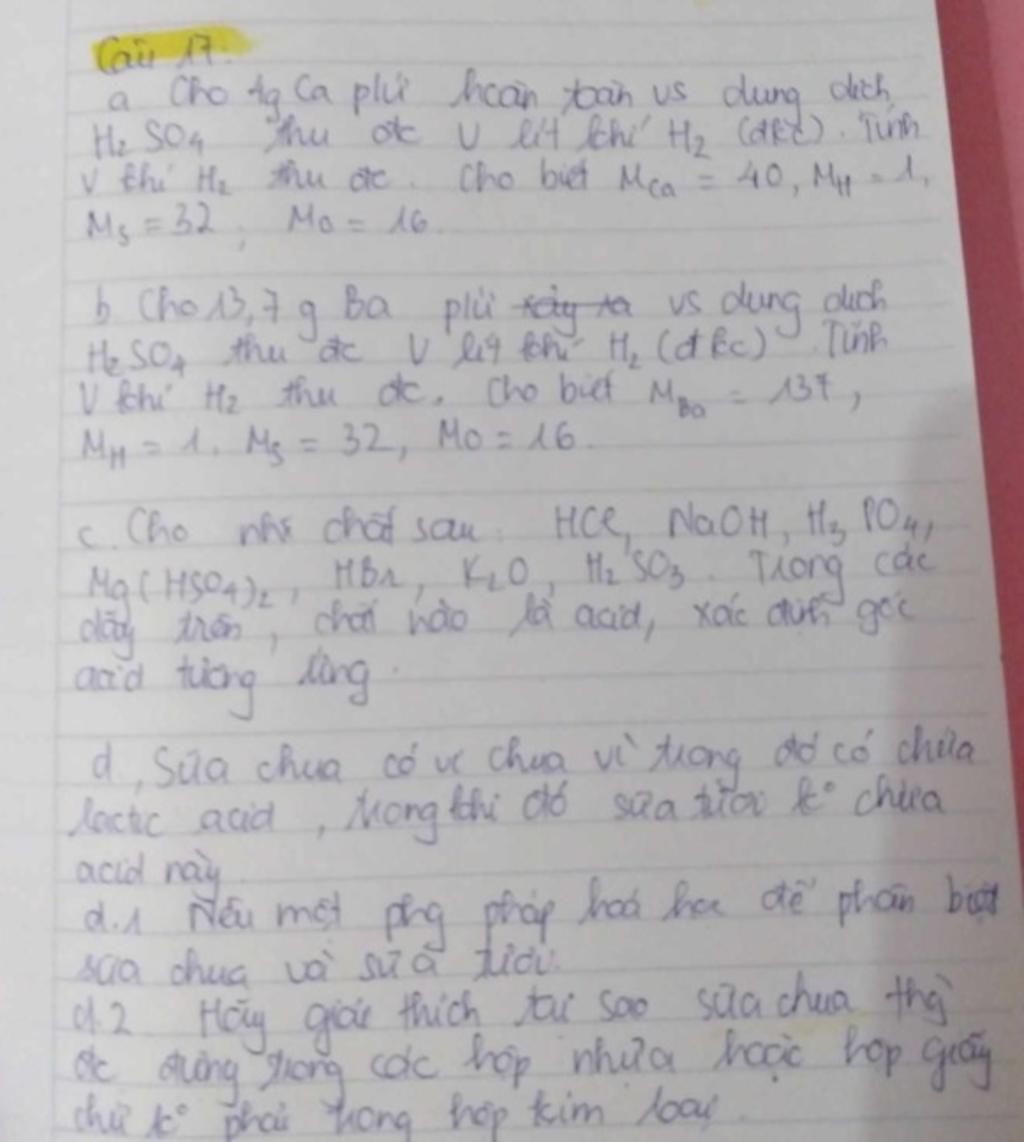 Câu 17.
a Cho 4g Ca pứ hoàn toàn vs dung dịch
H₂SO₄ thu đc V lít khí H₂ (đkc). Tính
V khí H₂ thu đc. Cho biết M_Ca = 40, M_H = 1,
M_S = 32, M_O = 16.
b Cho 13,7 g Ba pứ xảy ra vs dung dịch
H₂SO₄ thu đc V lít khí H₂ (đkc) Tính
V khí H₂ thu đc. Cho biết M_Ba = 137,
M_H = 1. M_S = 32, M_O = 16.
c. Cho chất sau. HCl, NaOH, H₃PO₄,
Mg(HSO₄)₂, HBr, K₂O, H₂SO₃. Trong các
dãy trên, chất nào là acid, xác định gốc
acid tương ứng.
d, Sữa chua có vị chua vì trong đó có chứa
lactic acid, trong khi đó sữa tươi k° chứa
acid này.
d.1 Nêu một phg pháp hoá học để phân biệt
sữa chua và sữa tươi.
d.2 Hãy giải thích tại sao sữa chua thg
đc đựng trong các hộp nhựa hoặc hộp giấy
chứ k° phải trong hộp kim loại.